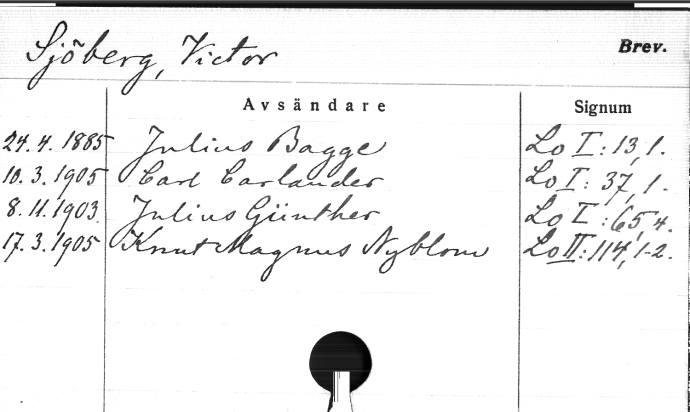 Sjöberg, Victor Brev.
Avsändare Signum
24. 4. 1885 Julius Bagge Lo I: 13, 1.
10. 3. 1905 Carl Carlander Lo I: 37, 1.
8. 11. 1903 Julius Günther Lo I: 65, 4.
17. 3. 1905 Knut Magnus Nyblom Lo II: 114, 1-2.